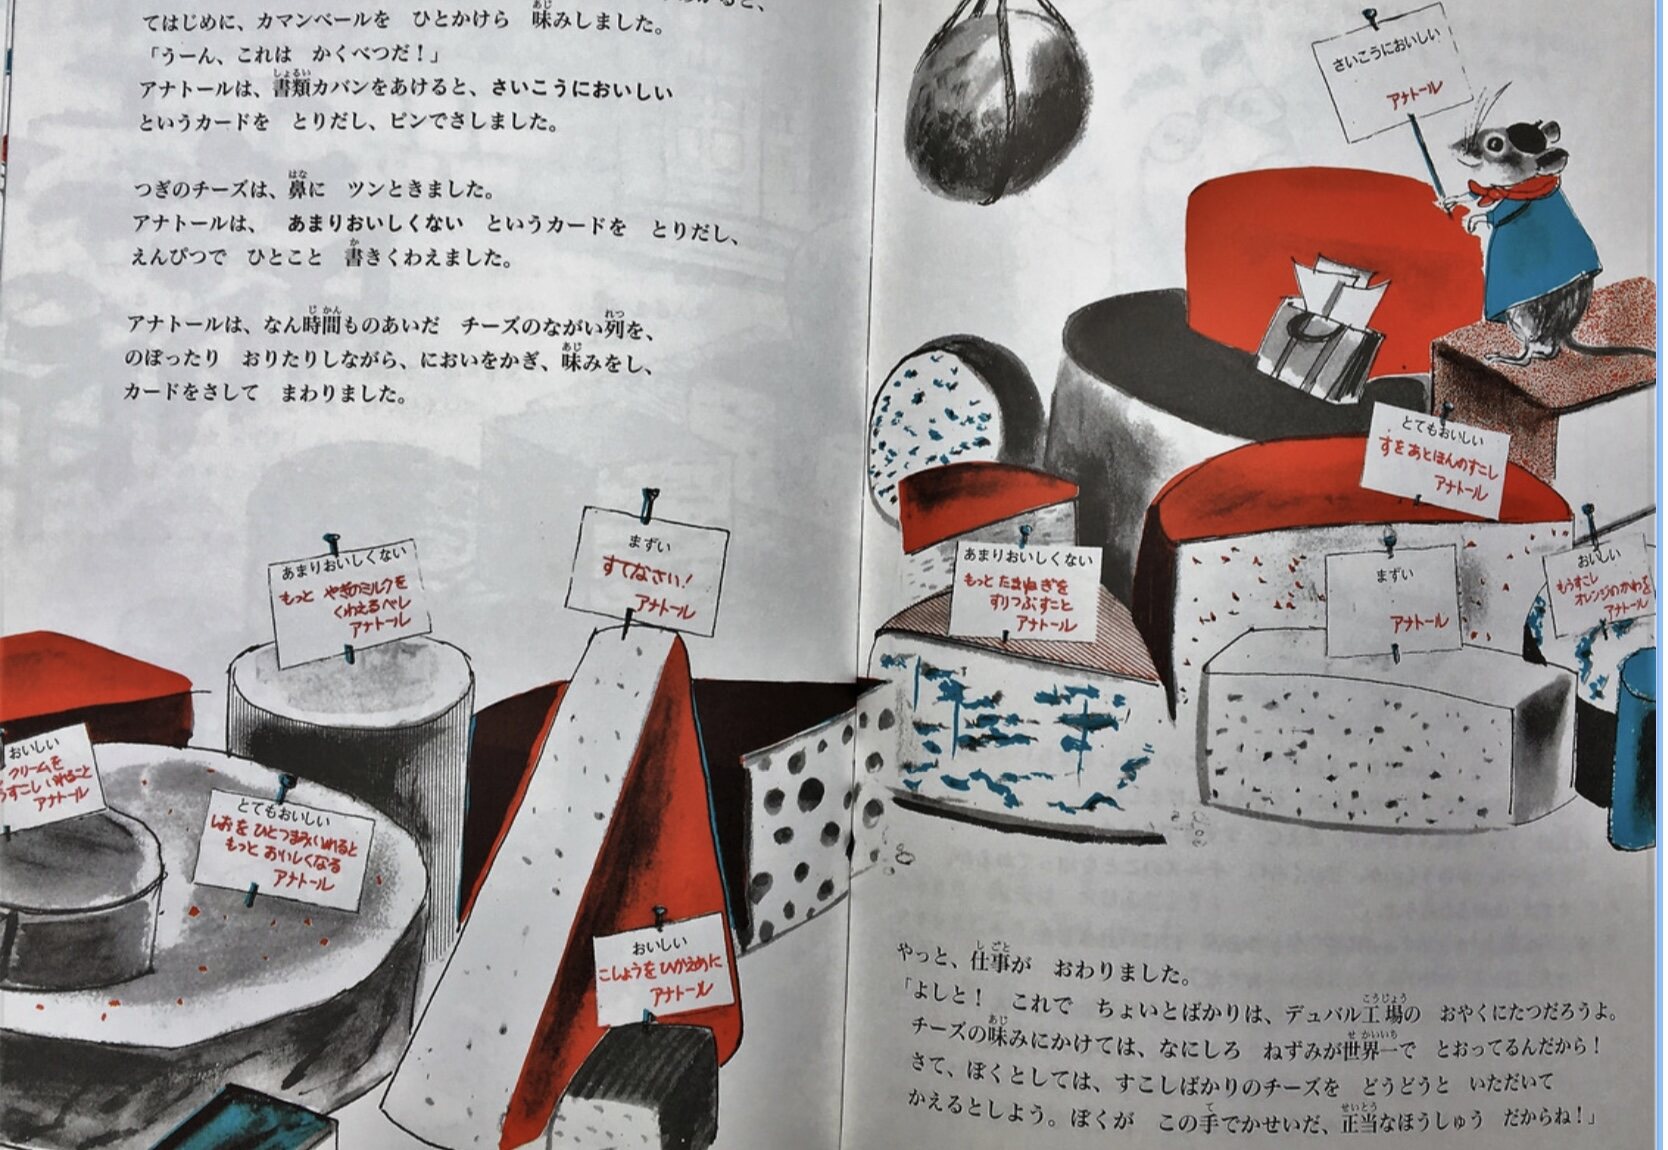 てはじめに、カマンベールを　ひとかけら　味みしました。
「うーん、これは　かくべつだ！」
アナトールは、書類カバンをあけると、さいこうにおいしい
というカードを　とりだし、ピンでさしました。
つぎのチーズは、鼻に　ツンときました。
アナトールは、　あまりおいしくない　というカードを　とりだし、
えんぴつで　ひとこと　書きくわえました。
アナトールは、なん時間ものあいだ　チーズのながい列を、
のぼったり　おりたりしながら、においをかぎ、味みをし、
カードをさして　まわりました。
あまりおいしくない
もっと やぎのミルクを
くわえるべし
アナトール
まずい
すてなさい！
アナトール
おいしい
クリームを
うすこし いれること
アナトール
とてもおいしい
しおを ひとつまみいれると
もっと おいしくなる
アナトール
おいしい
こしょうを ひかえめに
アナトール
さいこうにおいしい
アナトール
とてもおいしい
すを あとほんのすこし
アナトール
あまりおいしくない
もっと たまねぎを
すりつぶすこと
アナトール
まずい
アナトール
おいしい
もうすこし
オレンジのかわを
アナトール
やっと、仕事が　おわりました。
「よしと！　これで　ちょいとばかりは、デュバル工場の　おやくにたつだろうよ。
チーズの味みにかけては、なにしろ　ねずみが世界一で　とおってるんだから！
さて、ぼくとしては、すこしばかりのチーズを　どうどうと　いただいて
かえるとしよう。ぼくが　この手でかせいだ、正当なほうしゅう　だからね！」